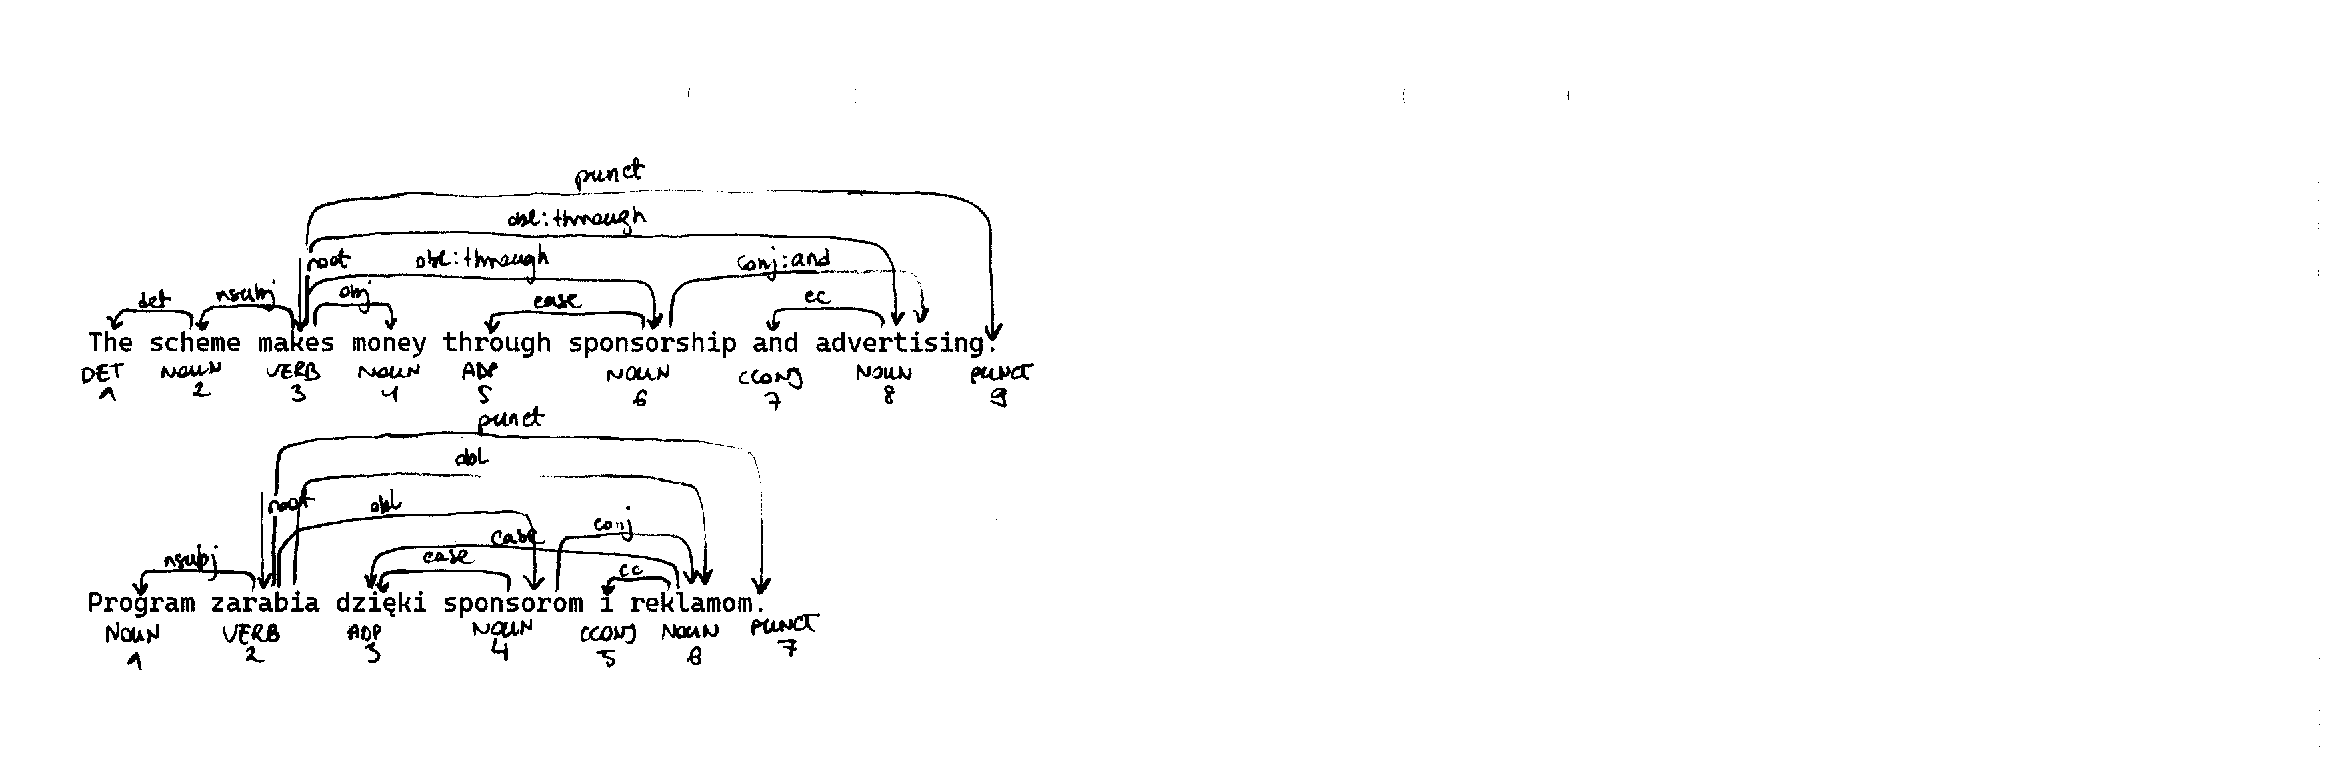 punct
obl:through
root obl:through conj:and
det nsubj obj case cc
The scheme makes money through sponsorship and advertising.
DET NOUN VERB NOUN ADP NOUN CCONJ NOUN PUNCT
1 2 3 4 5 6 7 8 9
punct
obl
root obl conj
case
nsubj case cc
Program zarabia dzięki sponsorom i reklamom.
NOUN VERB ADP NOUN CCONJ NOUN PUNCT
1 2 3 4 5 6 7